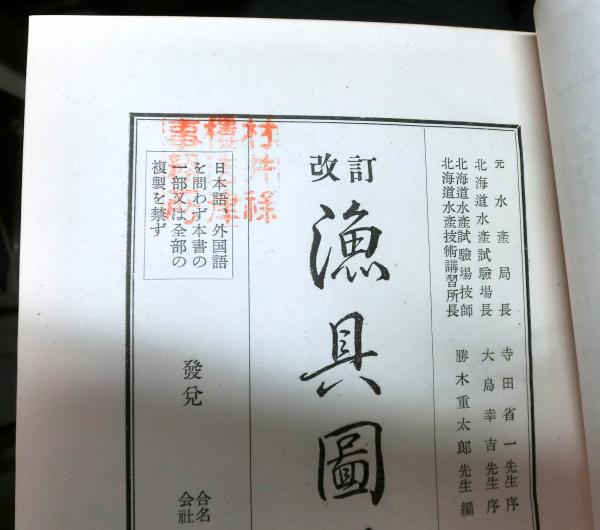 元 水產局長 寺田省一先生序
北海道水產試驗場長 大島幸吉先生序
北海道水產試驗場技師
北海道水產技術講習所長
勝木重太郎先生編
改訂
漁具圖
日本語、外国語
を問わず本書の
一部又は全部の
複製を禁ず
發兌
合名
会社